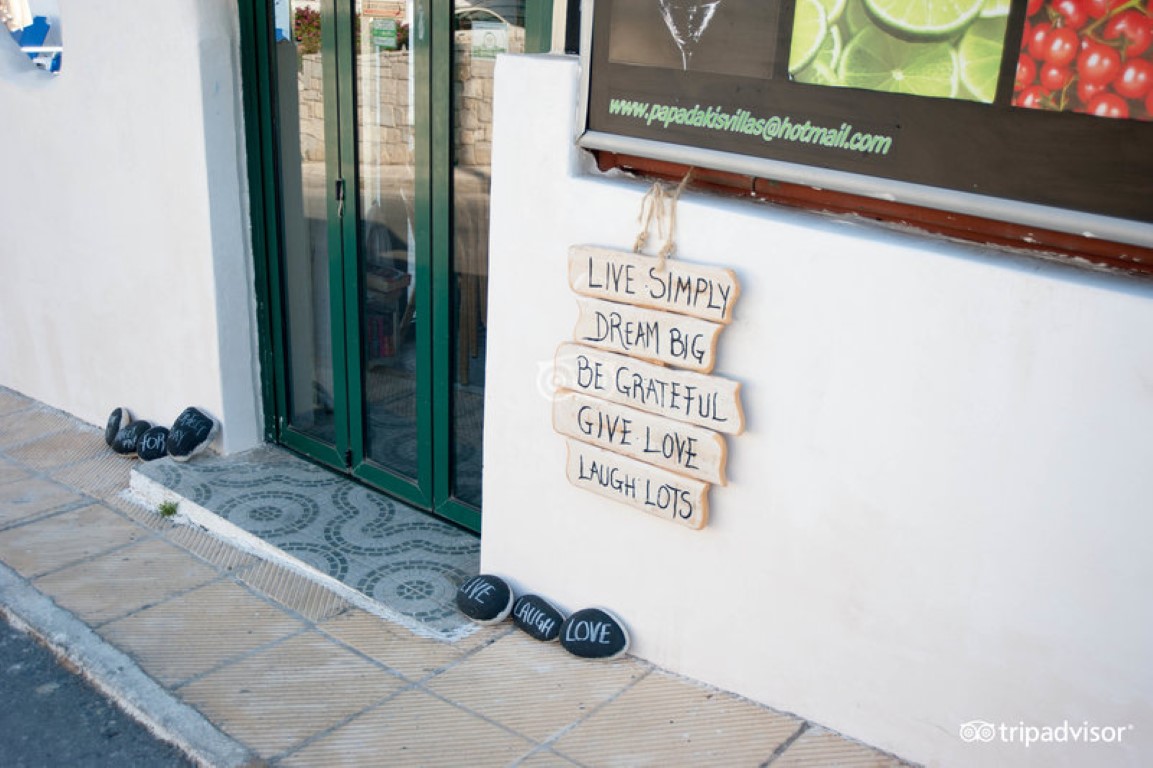 www.papadakisvillas@hotmail.com
LIVE·SIMPLY
DREAM BIG
BE GRATEFUL
GIVE LOVE
LAUGH LOTS
FOR
LIVE
LAUGH
LOVE
tripadvisor